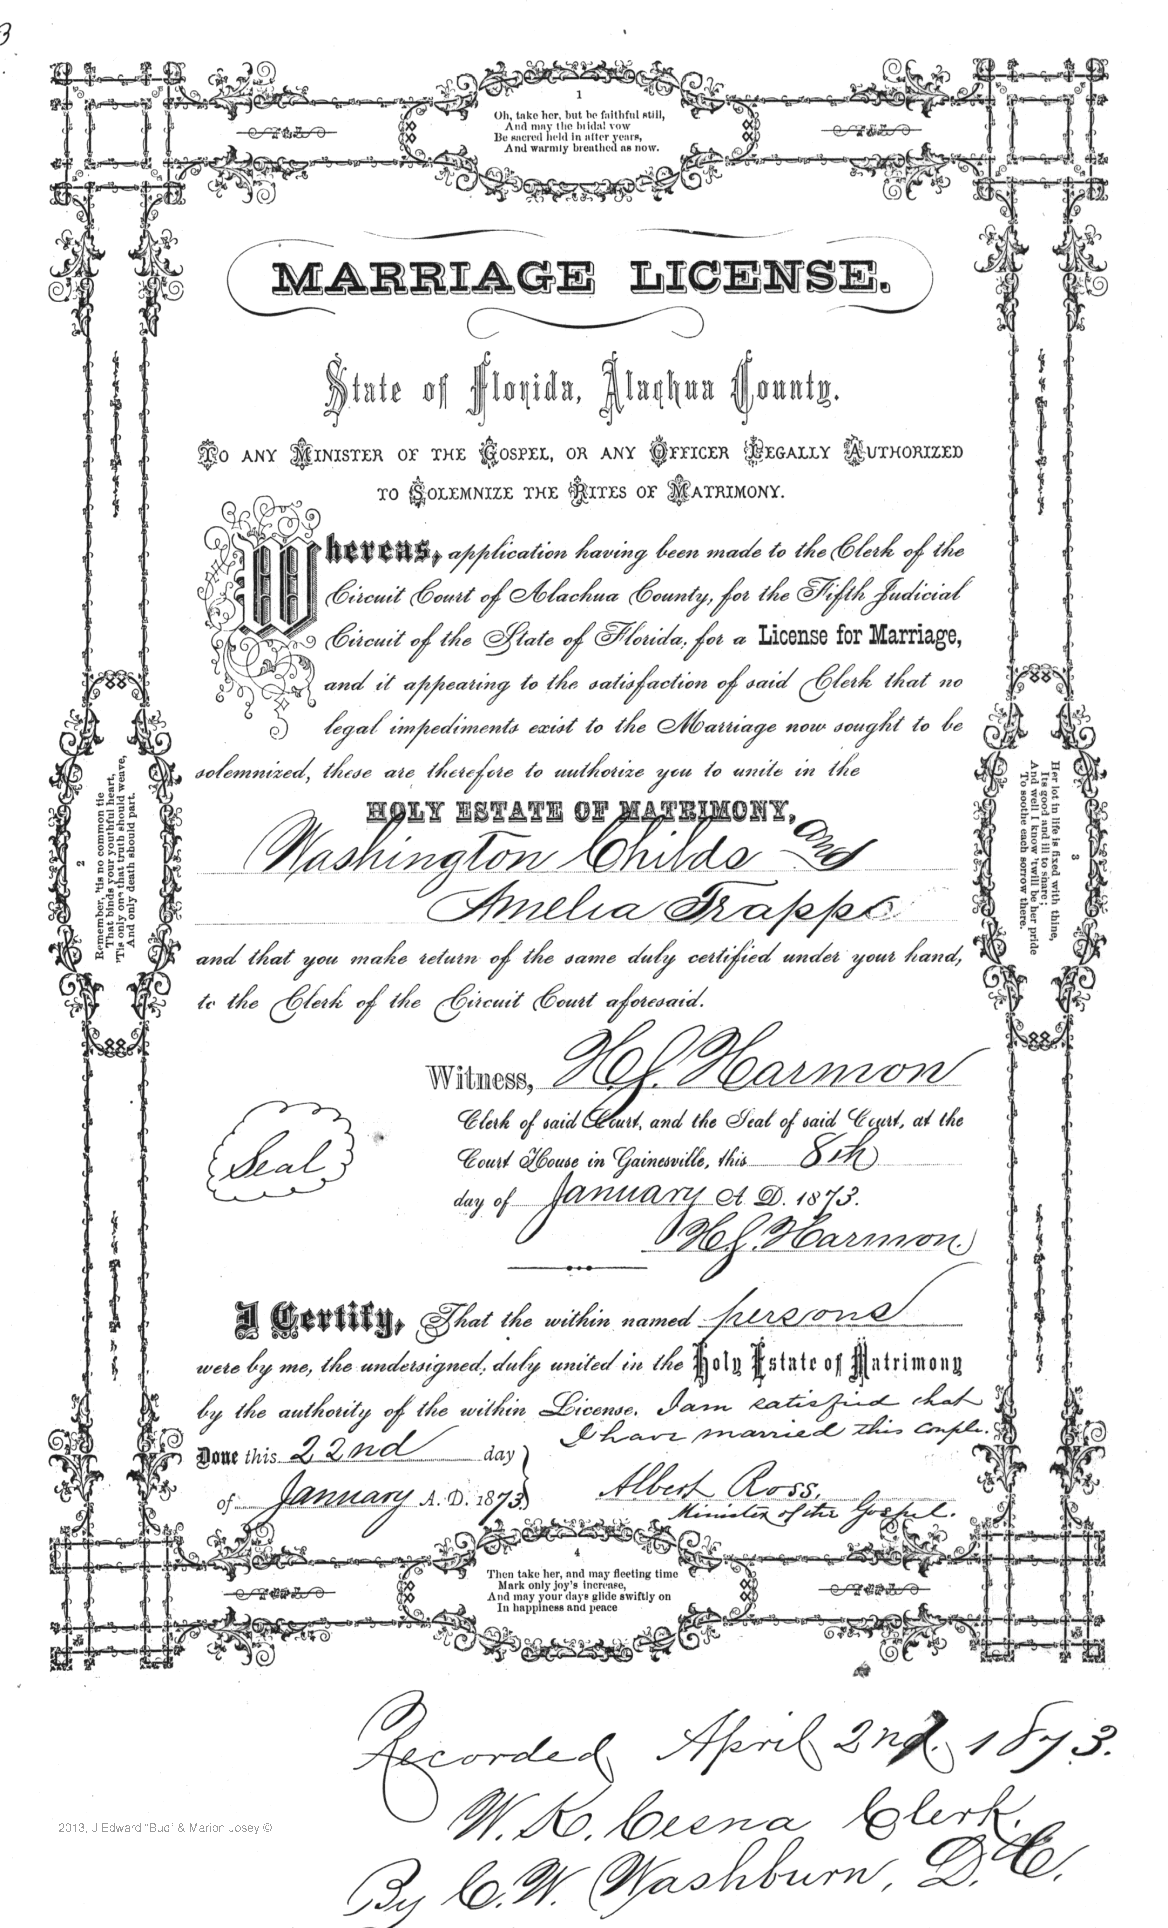 3
1
Oh, take her, but be faithful still,
And may the bridal vow
Be sacred held in after years,
And warmly breathed as now.
MARRIAGE LICENSE.
State of Florida, Alachua County.
TO ANY MINISTER OF THE GOSPEL, OR ANY OFFICER LEGALLY AUTHORIZED
TO SOLEMNIZE THE RITES OF MATRIMONY.
Whereas, application having been made to the Clerk of the
Circuit Court of Alachua County, for the Fifth Judicial
Circuit of the State of Florida, for a License for Marriage,
and it appearing to the satisfaction of said Clerk that no
legal impediments exist to the Marriage now sought to be
solemnized, these are therefore to authorize you to unite in the
HOLY ESTATE OF MATRIMONY,
Washington Childs and
Amelia Trapp
and that you make return of the same duly certified under your hand,
to the Clerk of the Circuit Court aforesaid.
2
Remember, 'tis no common tie
That binds your youthful heart,
'Tis only one that truth should weave,
And only death should part.
3
Her lot in life is fixed with thine,
Its good and ill to share;
And well I know 'twill be her pride
To soothe each sorrow there.
Witness, H.S. Harmon
Clerk of said Court, and the Seal of said Court, at the
Court House in Gainesville, this 8th
Seal
day of January A. D. 1873.
H.S. Harmon.
I Certify, That the within named persons
were by me, the undersigned, duly united in the Holy Estate of Matrimony
by the authority of the within License. I am satisfied that
I have married this couple.
Done this 22nd day
of January A. D. 1873.
Albert Ross,
Minister of the Gospel.
4
Then take her, and may fleeting time
Mark only joy's increase,
And may your days glide swiftly on
In happiness and peace
Recorded April 2nd. 1873.
W. K. Cesna Clerk.
By C. W. Washburn, D. C.
2013, J Edward "Bud" & Marion Josey ©